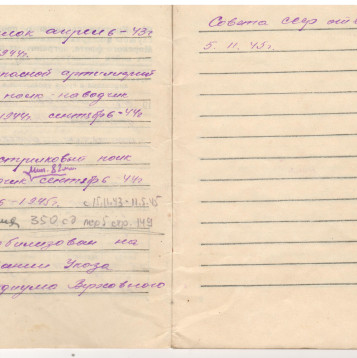 лок апрель-43г
1944г.
пасной артиллерий
полк наводчик
1944г. сентябрь-44г
стрелковый полк
мин. 82мм
чик сентябрь 44г
5-1945г. с 15.11.43-11.5.45
350 сд
149
билизован на
вании Указа
диума Верховного
Совета ссср от
5. 11. 45г.